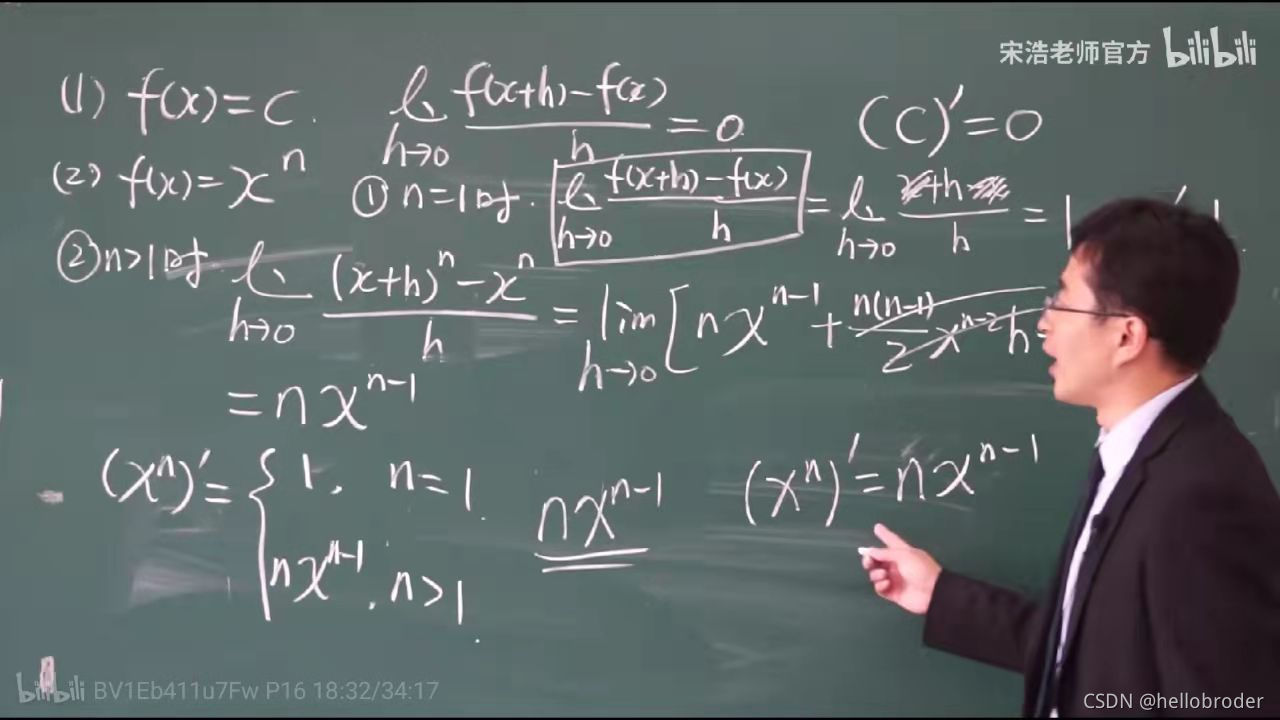 宋浩老师官方 bilibili
(1) f(x)=C. lim h→0 f(x+h)−f(x) / h =0 (C)′=0
(2) f(x)=x^n ① n=1时. lim h→0 f(x+h)−f(x) / h = lim h→0 x+h−x / h =1
② n>1时. lim h→0 (x+h)^n−x^n / h = lim h→0 [nx^{n−1}+ n(n−1)/2 x^{n−2}h
=nx^{n−1}
(x^n)′= { 1, n=1. nx^{n−1} (x^n)′=nx^{n−1}
nx^{n−1}, n>1.
bilibili BV1Eb411u7Fw P16 18:32/34:17
CSDN @hellobroder